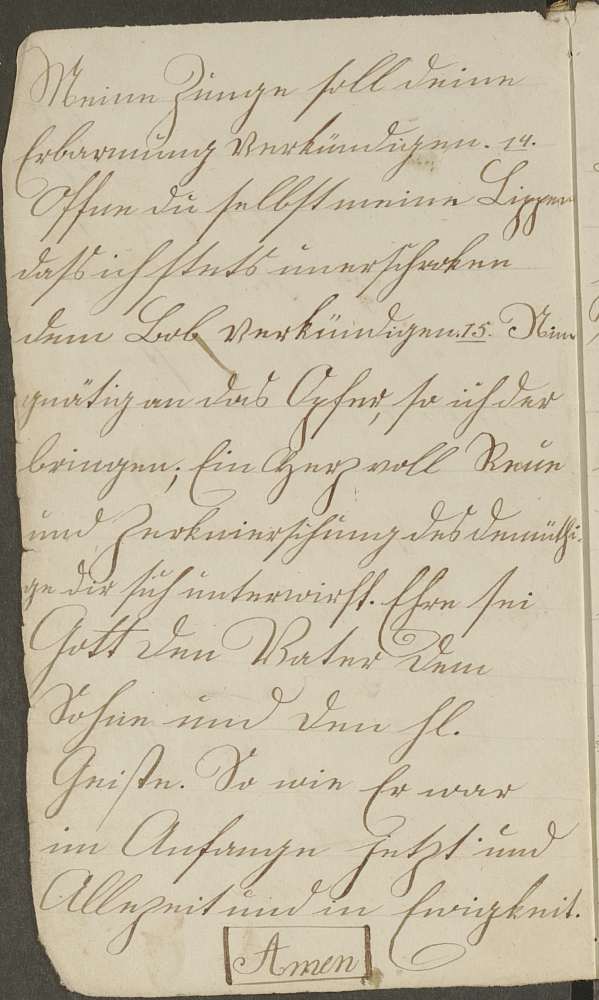 Meine Zunge soll deine
Erbarmung Verkündigen. 14.
Öffne du selbst meine Lippen
dass ich stets unerschroken
dem Lob Verkündigen. 15. Nim
gnätig an das Opfer, so ich der
bringen; Ein Herz voll Reue
und Zerknierschung des demüthi-
ge dir sich unterwirft. Ehre sei
Gott den Vater dem
Sohne und den hl.
Geiste. So wie Er war
im Anfange jetzt und
Allezeit und in Ewigkeit.
Amen